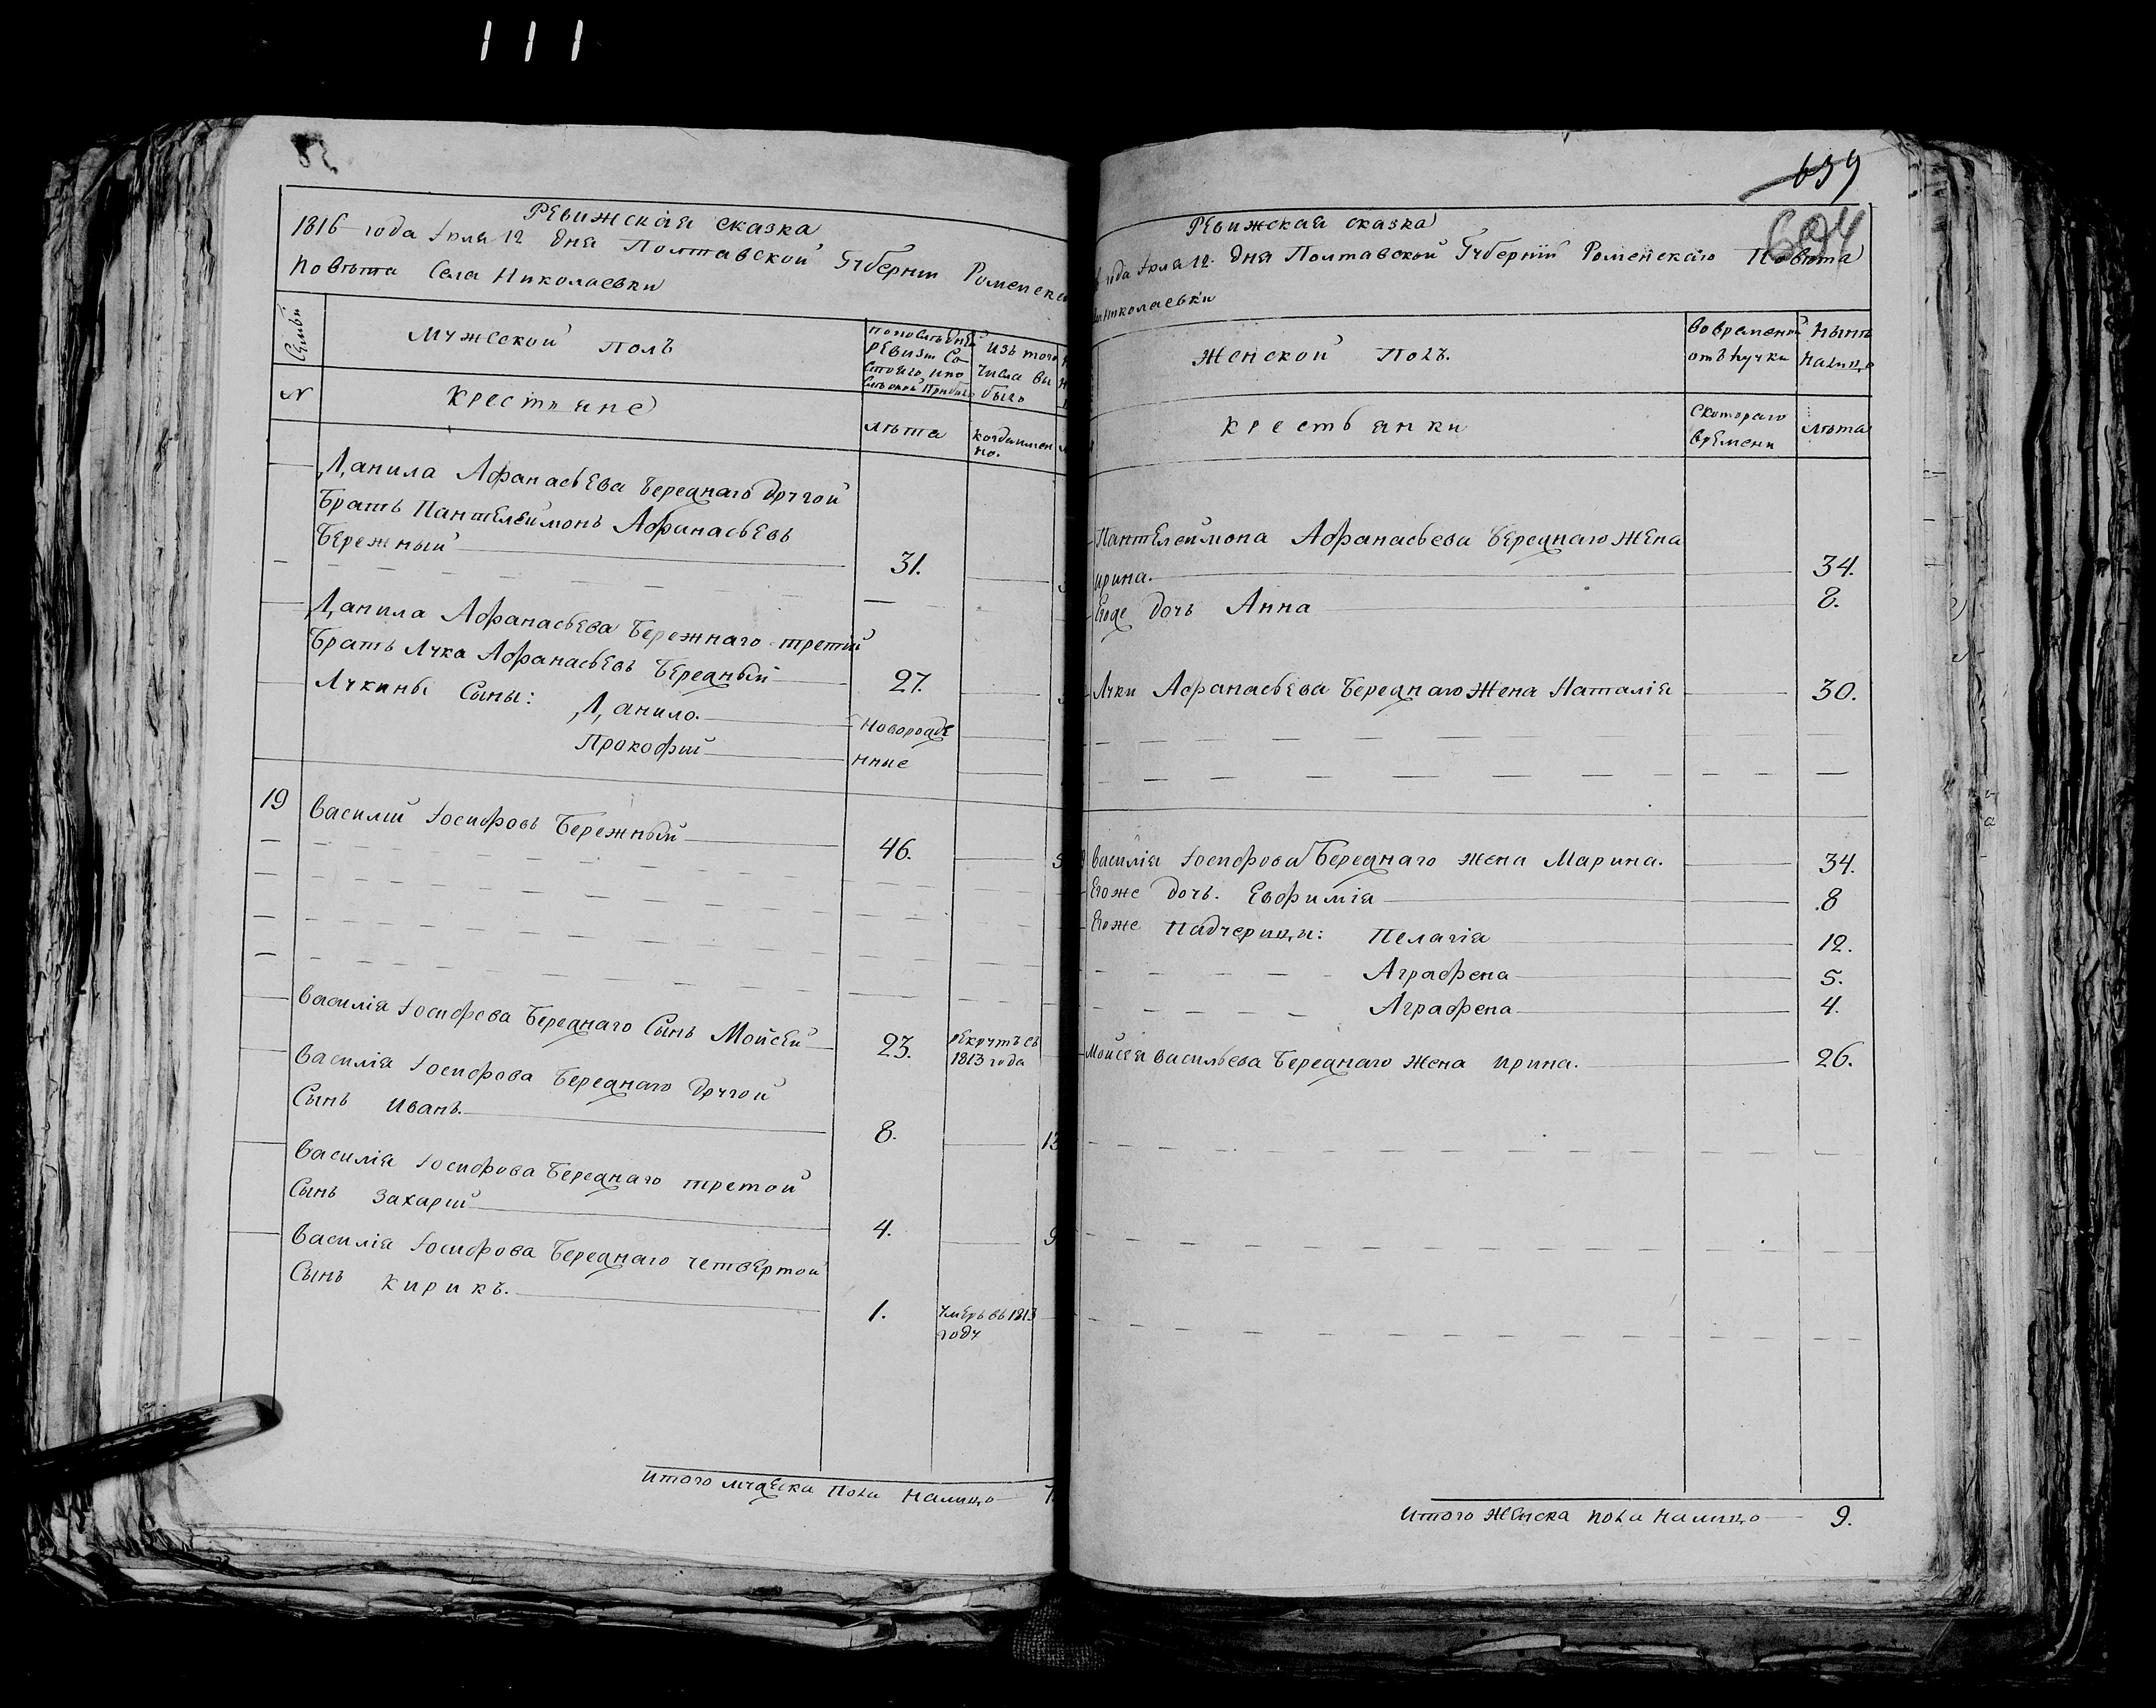 111
Ревижская сказка
1816 года Iюля 12 дня Полтавской Губернiи Роменска
Повѣта Села Николаевки
Семьи
Мужеской полъ
по последней
ревизiи Со-
стояло, и по
слѣ оной Прибыло
Изъ того
Числа вы
было
№
Крестьяне
лѣта
когда имен
но.
Данила Афанасьева Бережнаго другой
Братъ Пантелеймонъ Афанасьевъ
Бережный
31.
Данила Афанасьева Бережнаго третiй
Братъ Лука Афанасьевъ Бережный
27.
Лукины Сыны: Данило.
Новорожде
Прокофiй
нные
19
Василiй Iосифовъ Бережный
46.
Василiя Iосифова Бережнаго Сынъ Мойсей
23.
рекрутъ съ
1813 года
Василiя Iосифова Бережнаго другой
Сынъ Иванъ.
8.
13
Василiя Iосифова Бережнаго третой
Сынъ Захарiй
4.
9
Василiя Iосифова Бережнаго четвертой
Сынъ Кирикъ.
1.
Умеръ въ 1813
году
Итого мужеска пола налицо
639
694
Ревижская сказка
года Iюля 12. дня Полтавской Губернiи Роменскаго Повѣта
Николаевки
Женской полъ.
Во временной
отлучки
Нынѣ
налицо
Крестьянки
Скотораго
времени
лѣта
Пантелеймона Афанасьева Бережнаго Жена
Ирина.
34.
Егоже дочь Анна
8.
Луки Афанасьева Бережнаго Жена Наталiя
30.
Василiя Iосифова Бережнаго жена Марина.
34.
Егоже дочь. Евфимiя
8
Егоже Падчерицы: Пелагiя
12.
Аграфена
5.
Аграфена
4.
Мойсея Васильева Бережнаго жена Ирина.
26.
Итого Женска пола налицо
9.